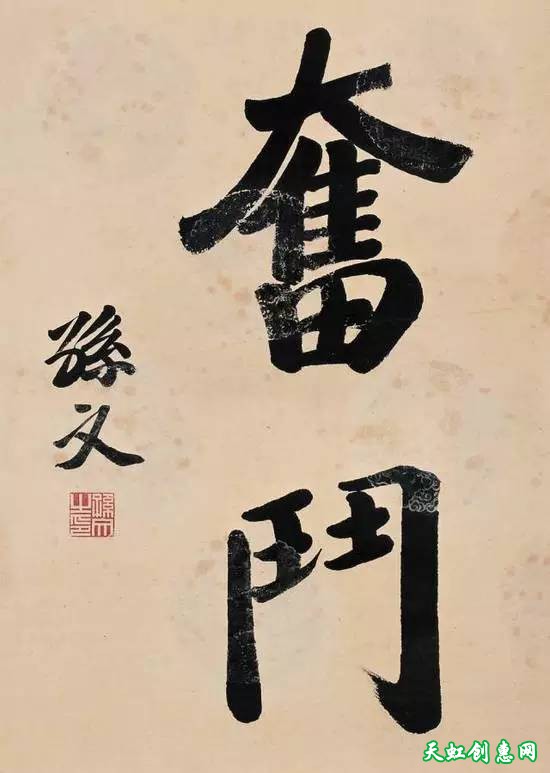 奮鬥
孫文
孫文之印
天虹创惠网